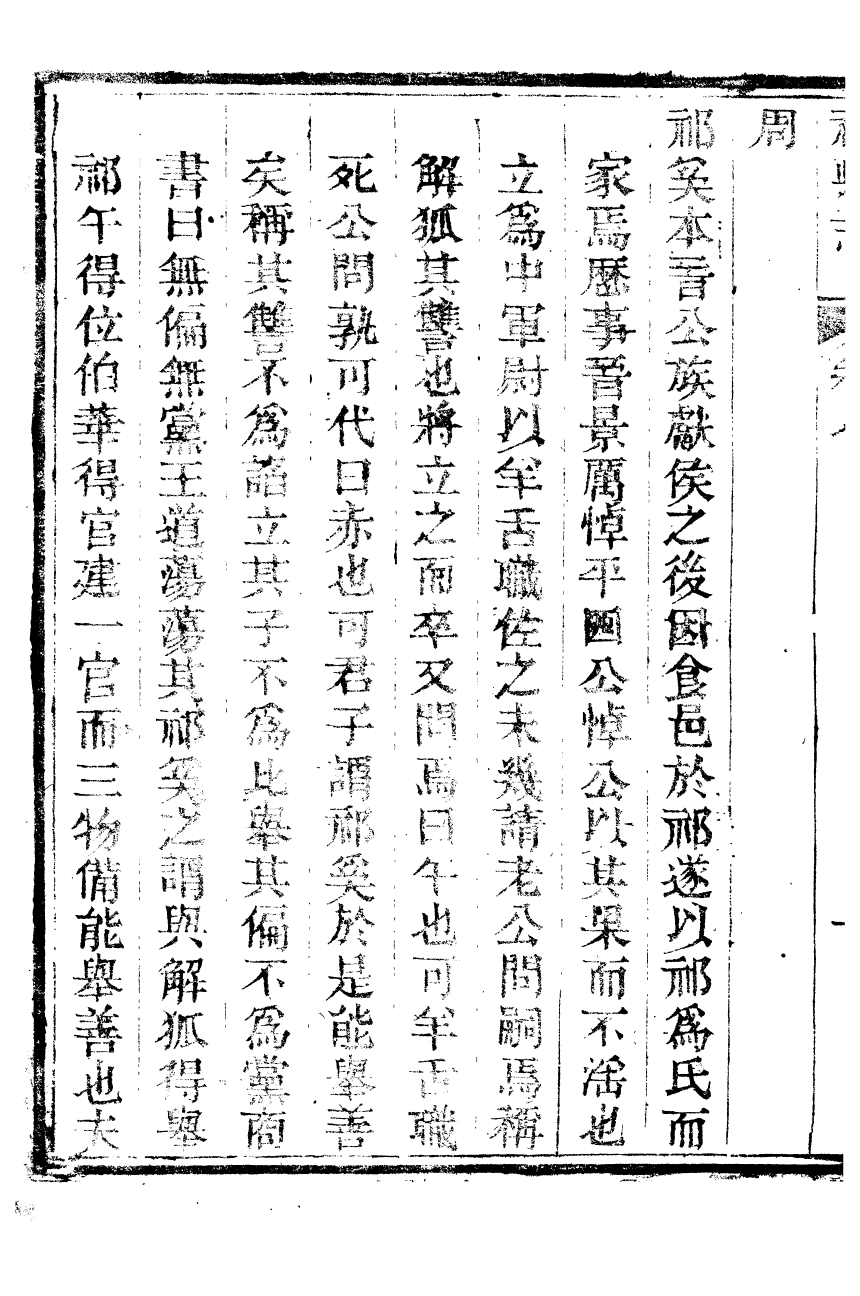 周
祁奚本晉公族獻侯之後因食邑於祁遂以祁爲氏而
家焉歷事晉景厲悼平四公悼公以其果而不淫也
立爲中軍尉以羊舌職佐之未幾請老公問嗣焉稱
解狐其讐也將立之而卒又問焉曰午也可羊舌職
死公問孰可代曰赤也可君子謂祁奚於是能舉善
矣稱其讐不爲謟立其子不爲比舉其偏不爲黨商
書曰無偏無黨王道蕩蕩其祁奚之謂與解狐得舉
祁午得位伯華得官建一官而三物備能舉善也夫